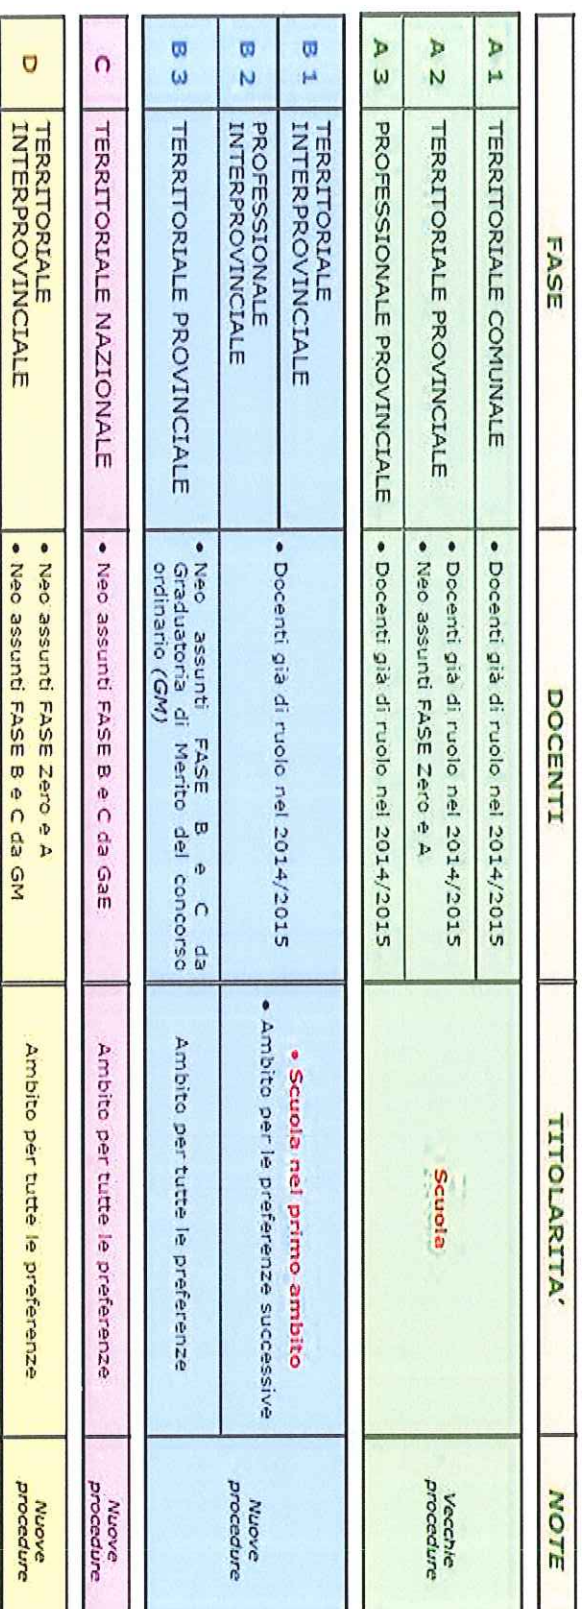 FASE
DOCENTI
TITOLARITA'
NOTE
A 1
TERRITORIALE COMUNALE
• Docenti già di ruolo nel 2014/2015
A 2
TERRITORIALE PROVINCIALE
• Docenti già di ruolo nel 2014/2015
• Neo assunti FASE Zero e A
A 3
PROFESSIONALE PROVINCIALE
• Docenti già di ruolo nel 2014/2015
Scuola
Vecchie
procedure
B 1
TERRITORIALE
INTERPROVINCIALE
B 2
PROFESSIONALE
INTERPROVINCIALE
• Docenti già di ruolo nel 2014/2015
• Scuola nel primo ambito
• Ambito per le preferenze successive
B 3
TERRITORIALE PROVINCIALE
• Neo assunti FASE B e C da
Graduatoria di Merito del concorso
ordinario (GM)
Ambito per tutte le preferenze
Nuove
procedure
C
TERRITORIALE NAZIONALE
• Neo assunti FASE B e C da GaE
Ambito per tutte le preferenze
Nuove
procedure
D
TERRITORIALE
INTERPROVINCIALE
• Neo assunti FASE Zero e A
• Neo assunti FASE B e C da GM
Ambito per tutte le preferenze
Nuove
procedure